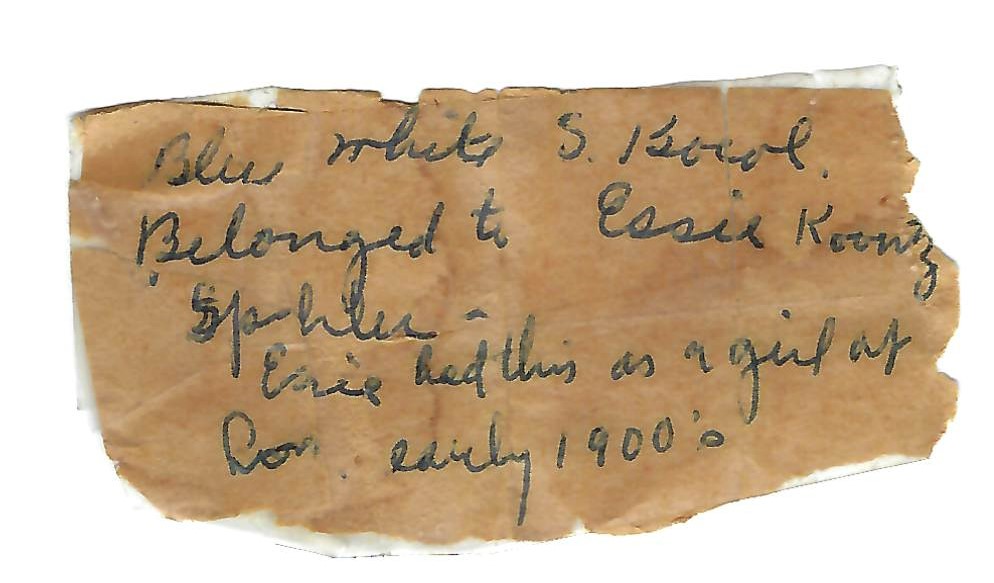 Blue white S. Bowl.
Belonged to Essie Koontz
Essie had this as a girl at
early 1900's